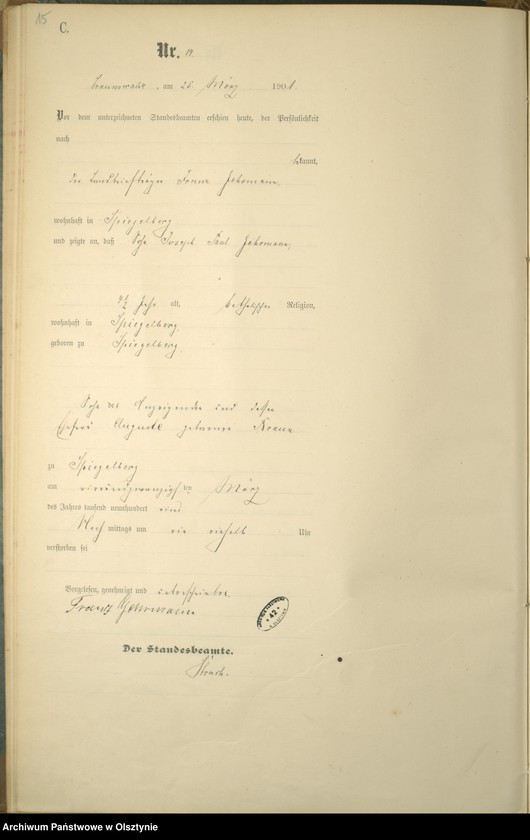 15
C.
Nr. 19.
Braunswalde, am 25. März 1901.
Vor dem unterzeichneten Standesbeamten erschien heute, der Persönlichkeit
nach
bekannt,
der Landbriefträger Franz
wohnhaft in Spiegelberg
und zeigte an, daß Sohn Joseph Paul
4½ Jahr alt, katholischer Religion,
wohnhaft in Spiegelberg,
geboren zu Spiegelberg,
Sohn des Anzeigenden und dessen
Ehefrau Auguste geborenen
zu Spiegelberg
am vierundzwanzigsten März
des Jahres tausend neunhundert eins
Nachmittags um ein einhalb Uhr
verstorben sei
Vorgelesen, genehmigt und unterschrieben
Franz
Der Standesbeamte.
42
Archiwum Państwowe w Olsztynie